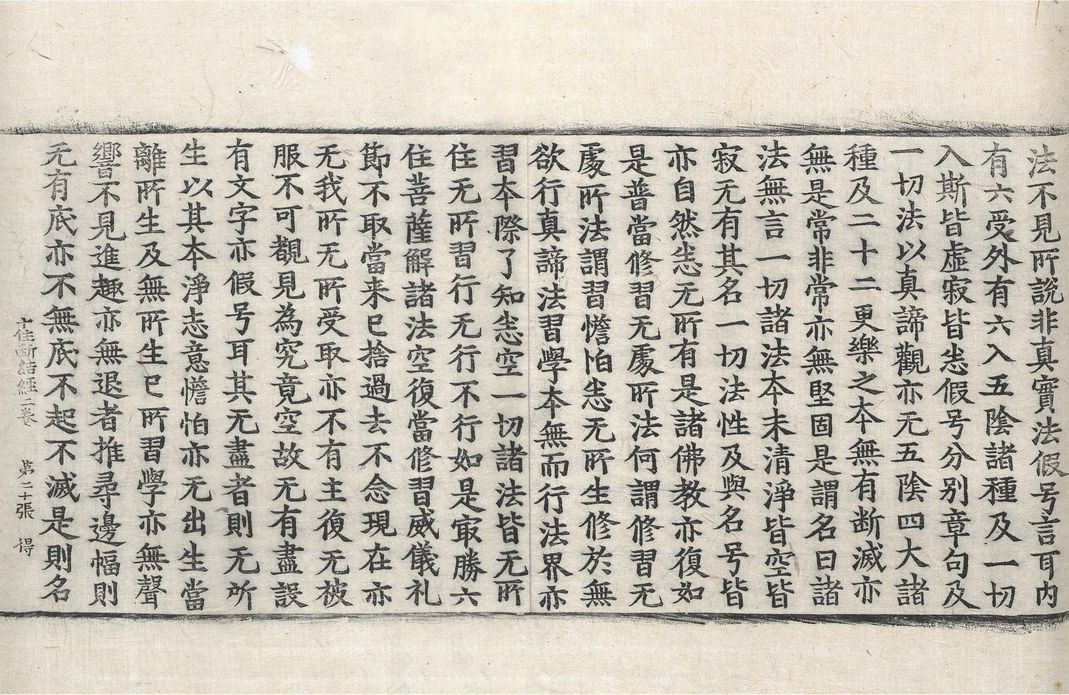 法不見所說非真實法假号言耳内
有六受外有六入五陰諸種及一切
入斯皆虛寂皆悉假号分别章句及
一切法以真諦觀亦无五陰四大諸
種及二十二更樂之本無有断滅亦
無是常非常亦無堅固是謂名曰諸
法無言一切諸法本末清淨皆空皆
寂无有其名一切法性及與名号皆
亦自然悉无所有是諸佛教亦復如
是普當修習无處所法何謂修習无
處所法謂習憺怕悉无所生修於無
欲行真諦法習學本無而行法界亦
習本際了知悉空一切諸法皆无所
住无所習行无行不行如是㝡勝六
住菩薩解諸法空復當修習威儀礼
節不取當来已捨過去不念現在亦
无我所无所受取亦不有主復无被
服不可覩見為究竟空故无有盡設
有文字亦假号耳其无盡者則无所
生以其本淨志意憺怕亦无出生當
離所生及無所生已所習學亦無聲
響不見進趣亦無退者推尋邊幅則
无有底亦不無底不起不滅是則名
十住断結經二卷 第二十張 得